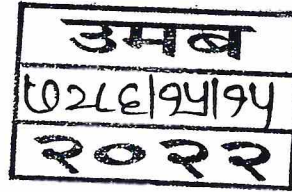 उमब
७२८६/१५/१५
२०२२